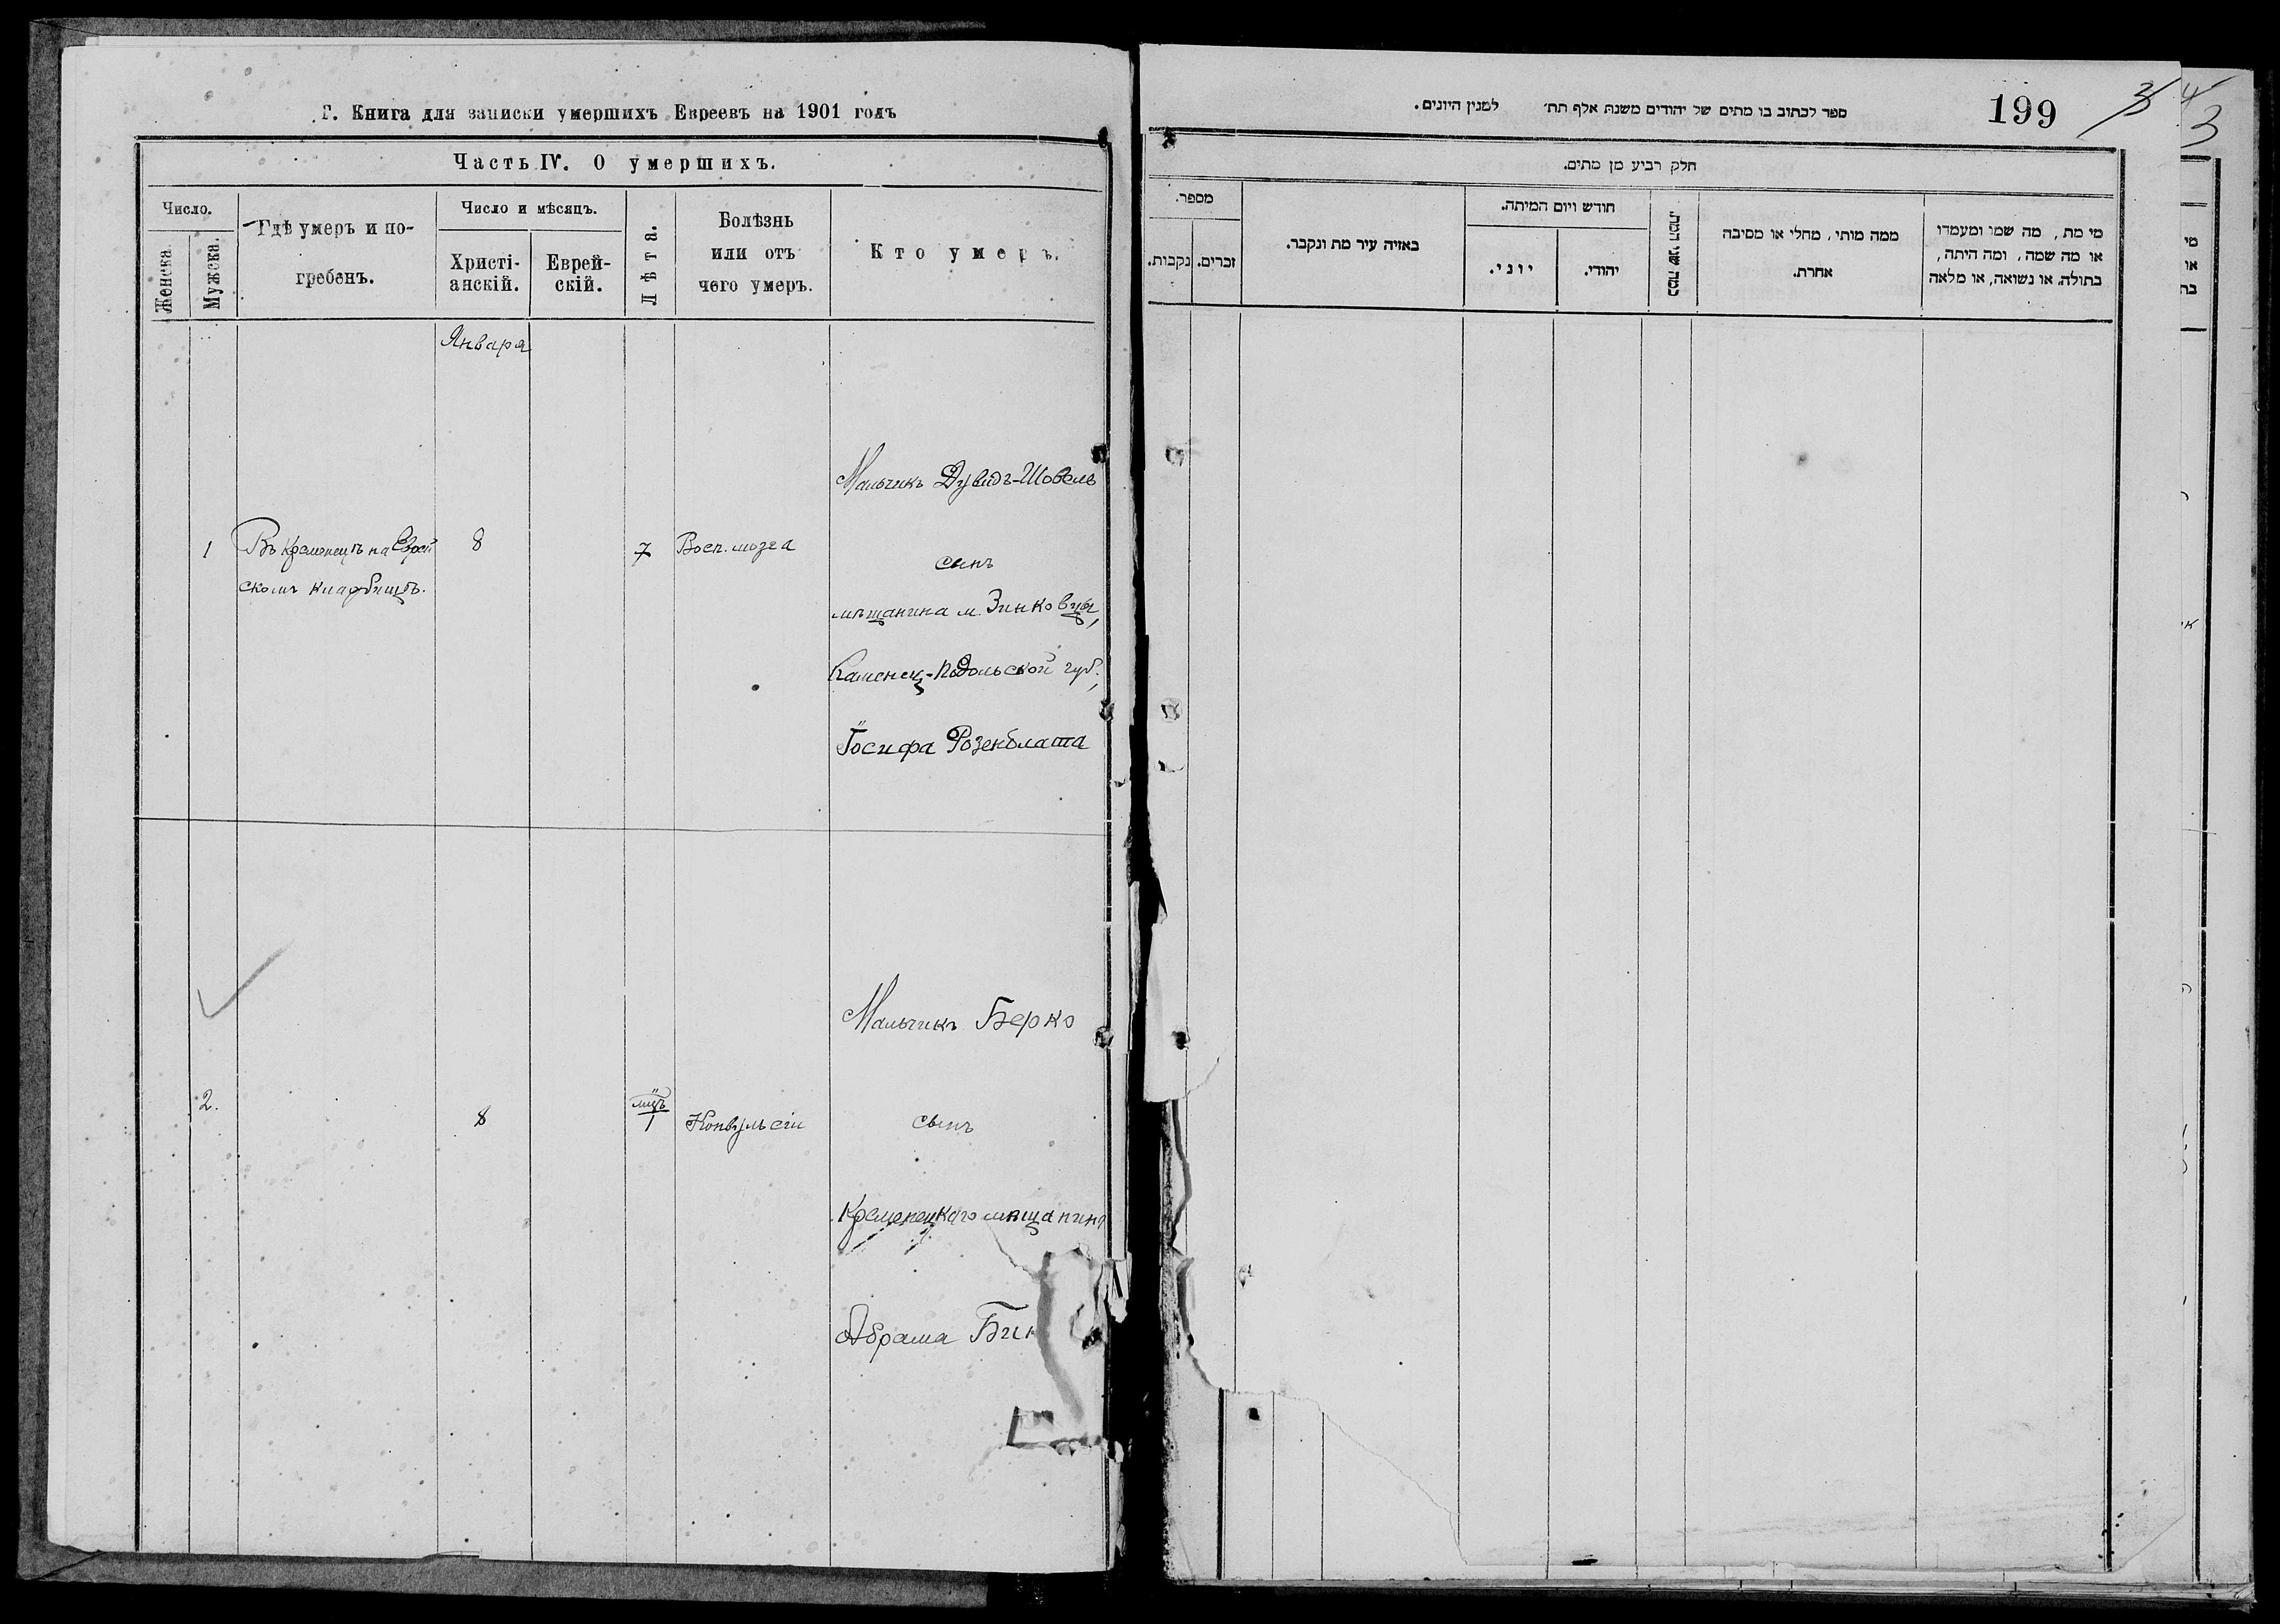 Г. Книга для записки умершихъ Евреевъ на 1901 годъ
Часть IV. О умершихъ.
Число.
Женска.
Мужска.
Гдѣ умеръ и по-
гребенъ.
Число и мѣсяцъ.
Христі-
анскій.
Еврей-
скій.
Лѣта.
Болѣзнь
или отъ
чего умеръ.
Кто умеръ.
Января
1
Въ Кременецѣ на Еврей
скомъ кладбищѣ.
8
7
Восп. мозга
Мальчикъ Дувидъ-Шовель
сынъ
мѣщанина м. Зинковцы,
Каменец-Подольской губ.,
Іосифа Розенблата
2.
8
мцъ
1
Конвульсіи
Мальчикъ Берко
сынъ
Кременецкаго мѣщанина
Абрама
ספר לכתוב בו מתים של יהודים משנת אלף תת׳ למנין היונים.
199
3
4
3
חלק רביע מן מתים.
מספר.
נקבות.
זכרים.
באיזה עיר מת ונקבר.
חודש ויום המיתה.
יוני.
יהודי.
כמה שני המת.
ממה מותי, מחלי או מסיבה
אחרת.
מי מת, מה שמו ומעמדו
או מה שמה, ומה היתה,
בתולה, או נשואה, או מלאה
מי
או
בת